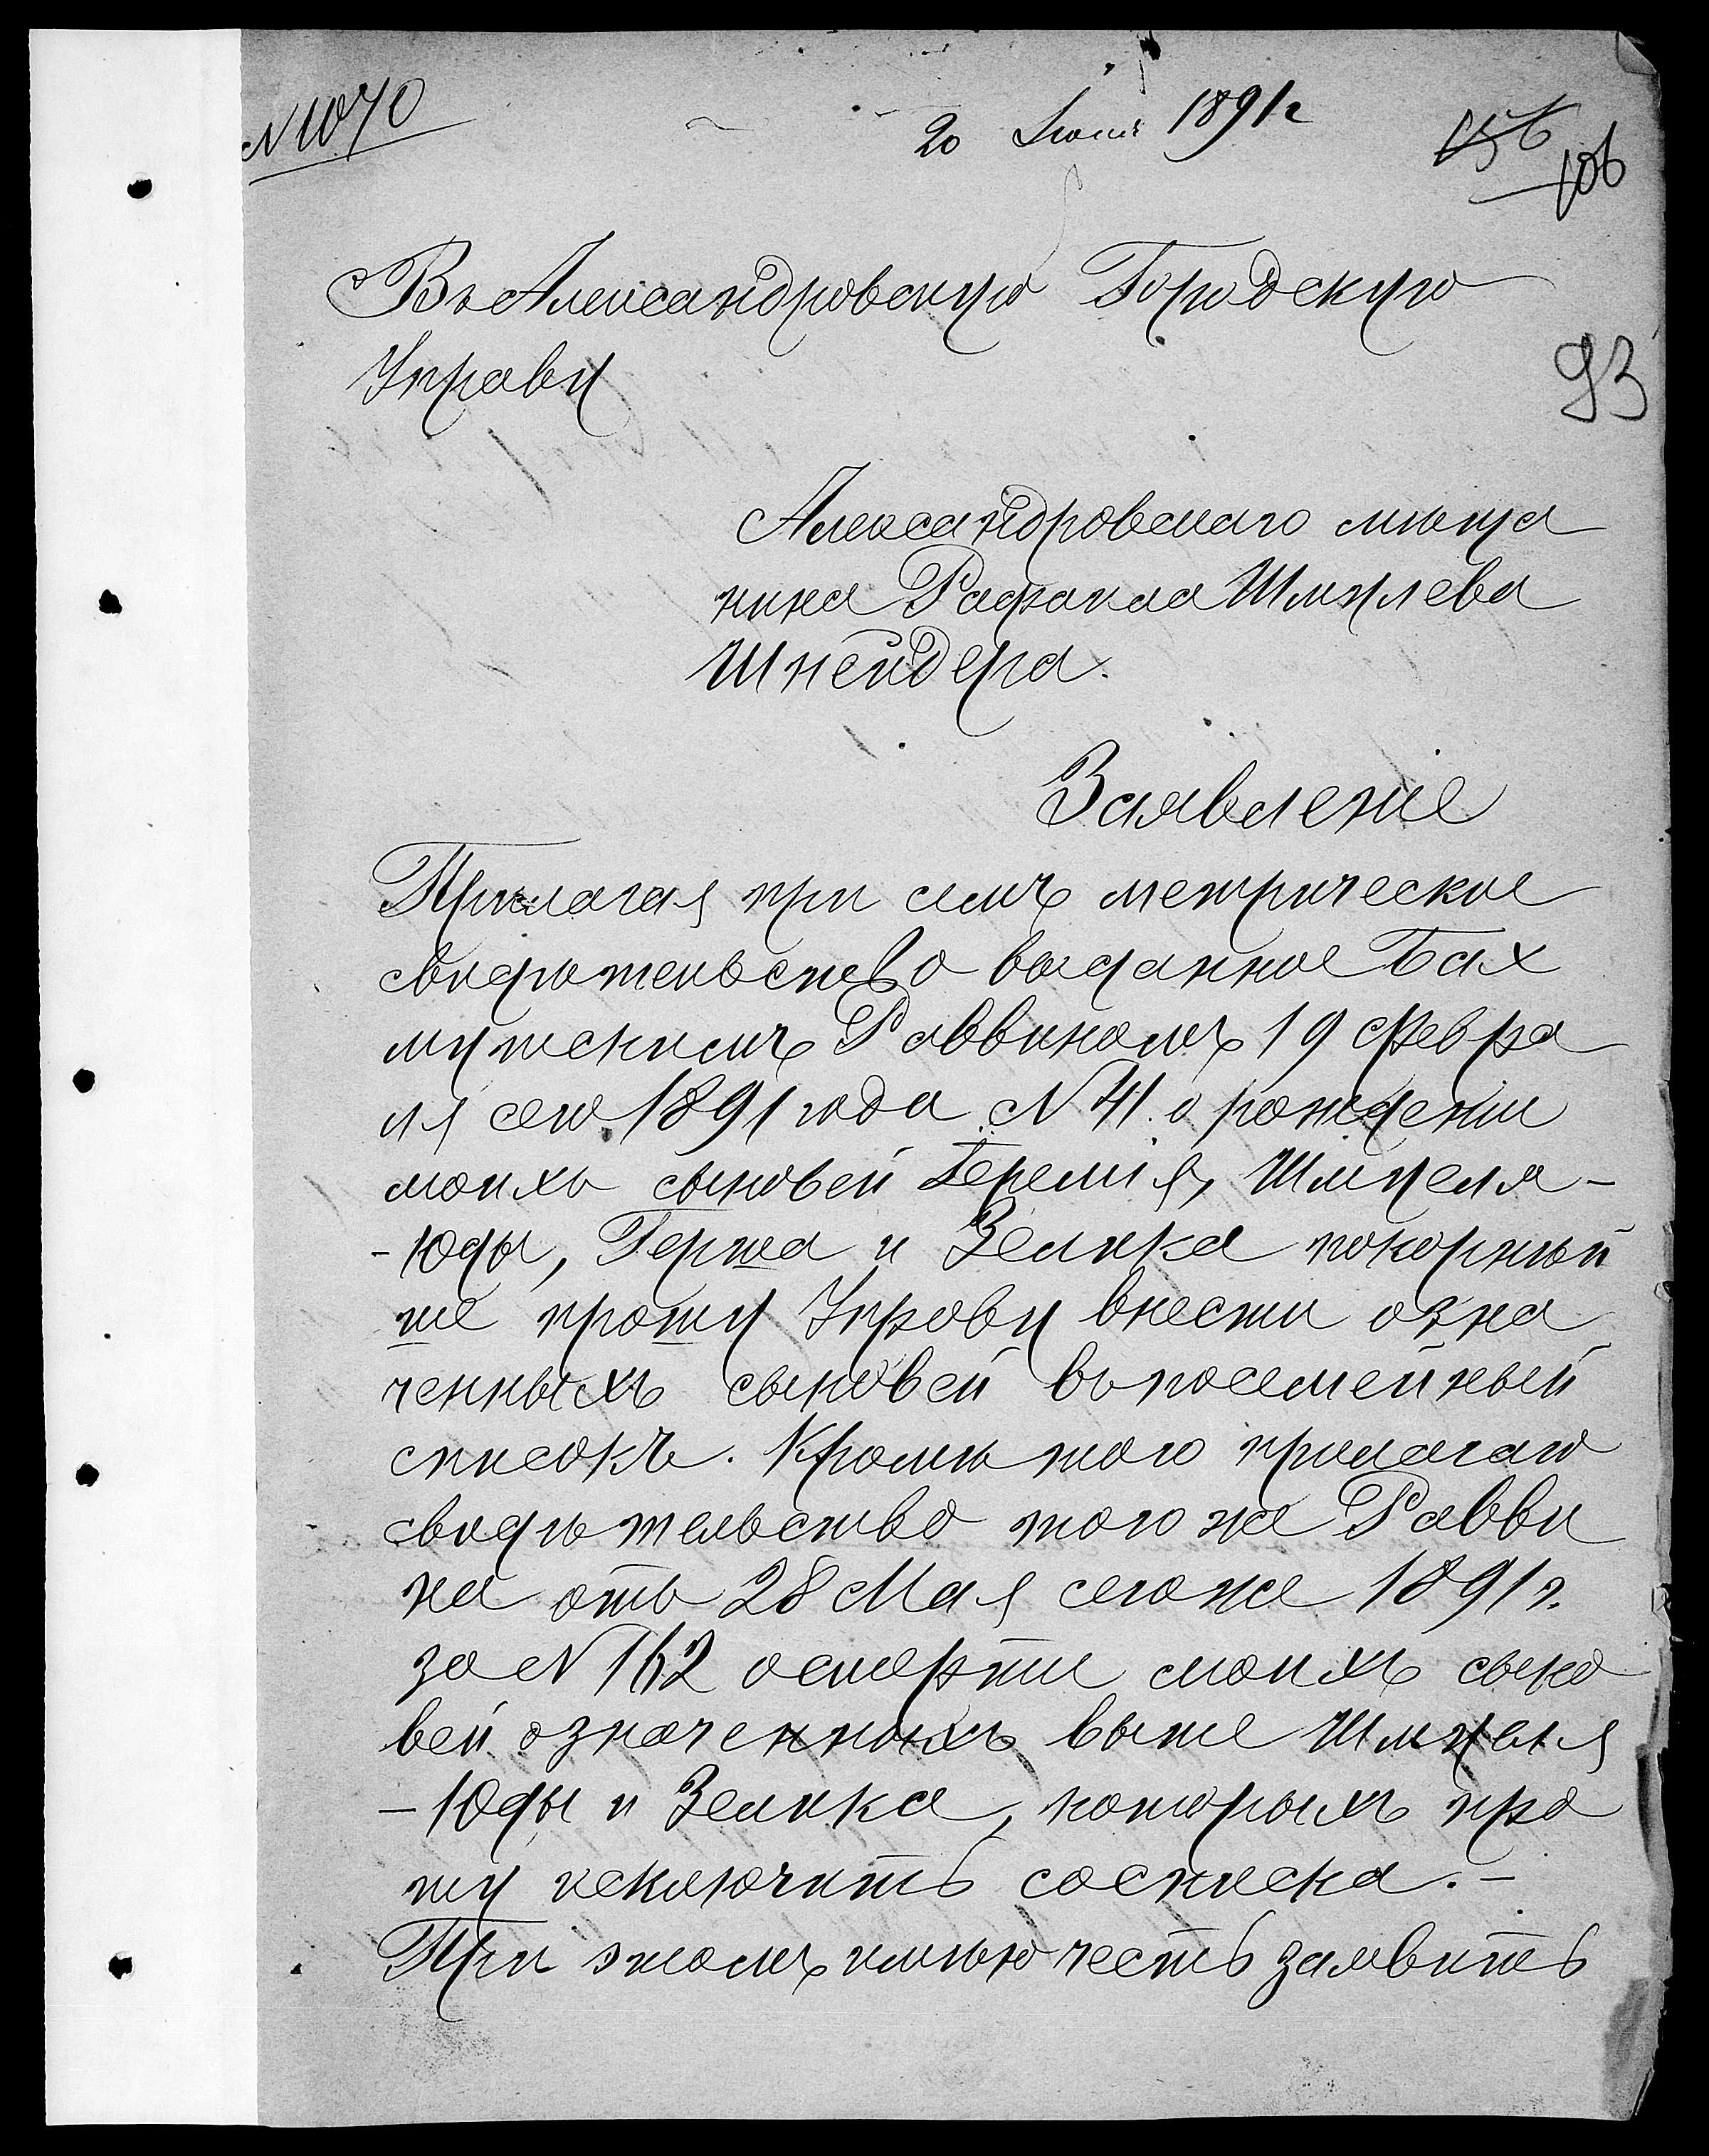 N 1070
20 Іюня 1891 г
156
106
Въ Александровскую Городскую
Управу
93
Александровскаго мѣща
нина Рафаила Шмулева
Шнейдера.
Заявленіе
Прилагая при семъ метрическое
свидѣтельство выданное Бах
мутскимъ Раввиномъ 19 Февра
ля сего 1891 года N 41 о рожденіи
моихъ сыновей Іеремія, Шмуеля-
-Юды, Герша и Зелика покорнѣй
ше прошу Управу внести озна
ченныхъ сыновей въ посемейный
списокъ. Кромѣ того прилагаю
свидѣтельство того же Равви
на отъ 28 Мая сего же 1891 г.
за N 162 о смерти моихъ сыно
вей означенныхъ выше Шмуеля
-Юды и Зелика, которыхъ про
шу исключить со списка. -
При этомъ имѣю честь заявить